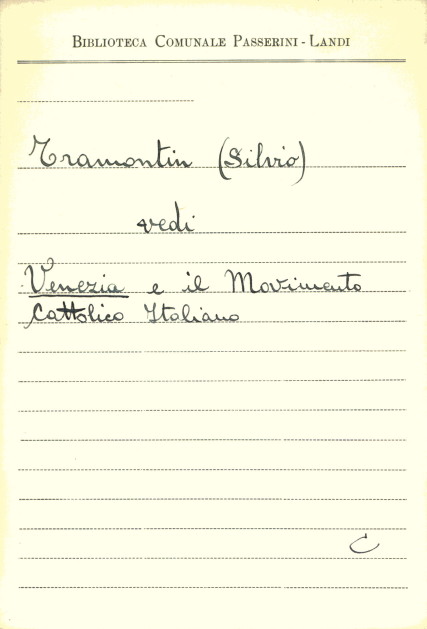 BIBLIOTECA COMUNALE PASSERINI - LANDI
Tramontin (Silvio)
vedi
Venezia e il Movimento
Cattolico Italiano
C